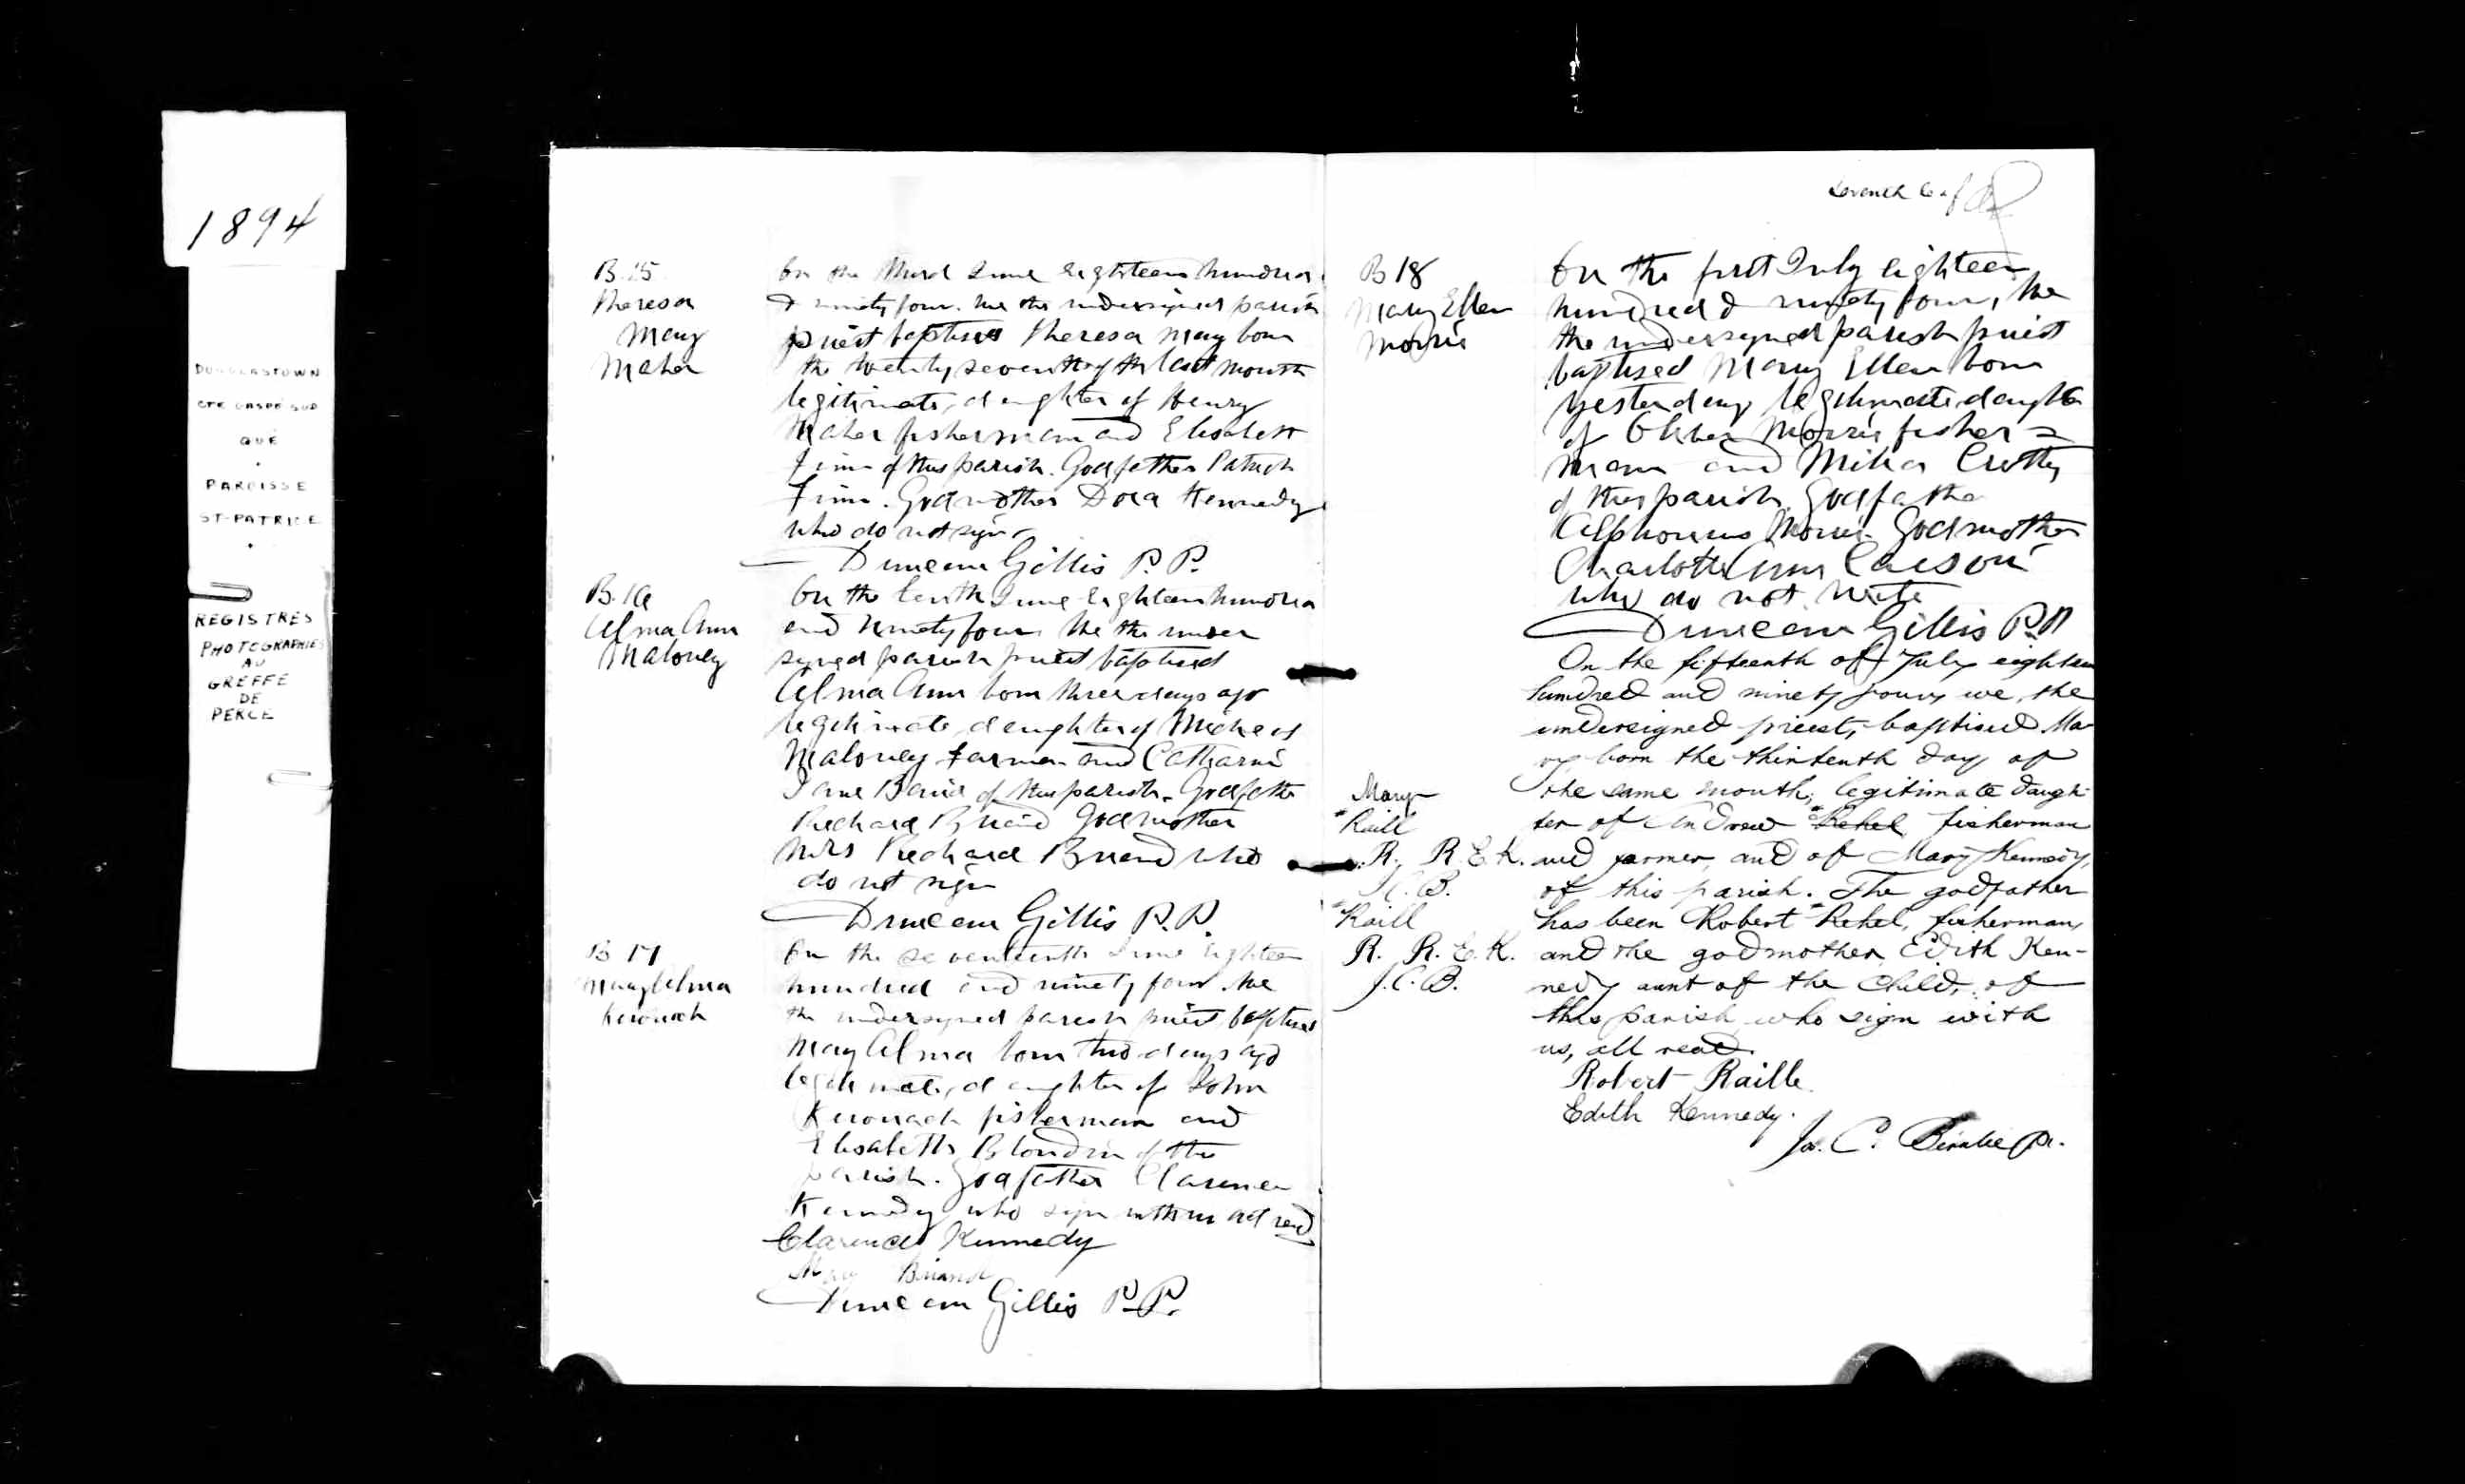 1894
DOUGLASTOWN
CTÉ GASPÉ SUD
QUÉ
PAROISSE
ST-PATRICE
REGISTRES
PHOTOGRAPHIES
AU
GREFFE
DE
PERCE
B. 15
Theresa
May
Maher
On the third June Eighteen hundred
& ninety four. We the undersigned parish
priest baptised Theresa May born
the twenty seventh of the last month
legitimate daughter of Henry
Maher fisherman and Elisabeth
of this parish. Godfather Patrick
Godmother Dora Kennedy
who do not sign
Duncan Gillis P. P.
B. 16
Alma Ann
Maloney
On the tenth June Eighteen hundred
and Ninety four We the under
signed parish priest baptised
Alma Ann born three days ago
legitimate daughter of Micheal
Maloney Farmer and Catharine
Jane of this parish. Godfather
Richard Briand Godmother
Mrs Richard Briand who
do not sign
Duncan Gillis P. P.
B 17
May Alma
Kerouack
On the seventeenth June Eighteen
hundred and ninety four We
the undersigned parish priest baptised
May Alma born two days ago
legitimate daughter of John
Kerouack fisherman and
Elisabeth Blondin of this
parish. Godfather Clarence
Kennedy who sign with us act read
Clarence Kennedy
May Briand
Duncan Gillis P. P.
Seventh leaf
B 18
Mary Ellen
Morris
On the first July eighteen
hundred & ninety four, We
the undersigned parish priest
baptised Mary Ellen born
yesterday legitimate daughter
of Morris fisher =
man and
of this parish. Godfather
Alphonsus Morris. Godmother
Charlotte Ann
who do not write
Duncan Gillis P. P.
On the fifteenth of July eighteen
hundred and ninety four, we, the
undersigned priest, baptised Ma-
ry born the thirteenth day of
the same month, legitimate daugh-
ter of Andrew * Rehel fisherman
and farmer, and of Mary Kennedy,
of this parish. The godfather
has been Robert * Rehel, fisherman,
and the godmother Edith Ken-
nedy aunt of the child, of
this parish who sign with
us, all read.
Mary
* Raill
R. R. E. K.
J. C. B.
* Raill
R. R. E. K.
J. C. B.
Robert Raille.
Edith Kennedy.